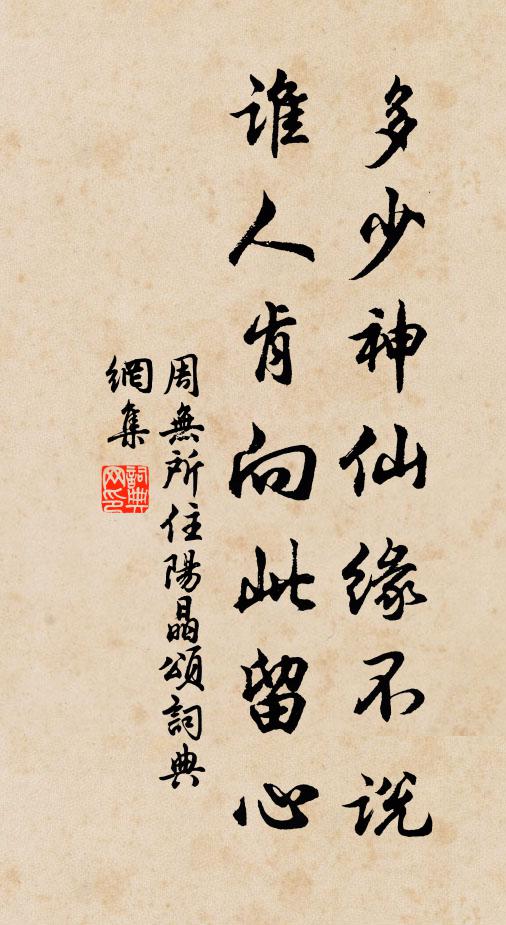 多少神仙缘不説
谁人肯向此留心
周無所住陽晶頌詞典
網集
詞典网印